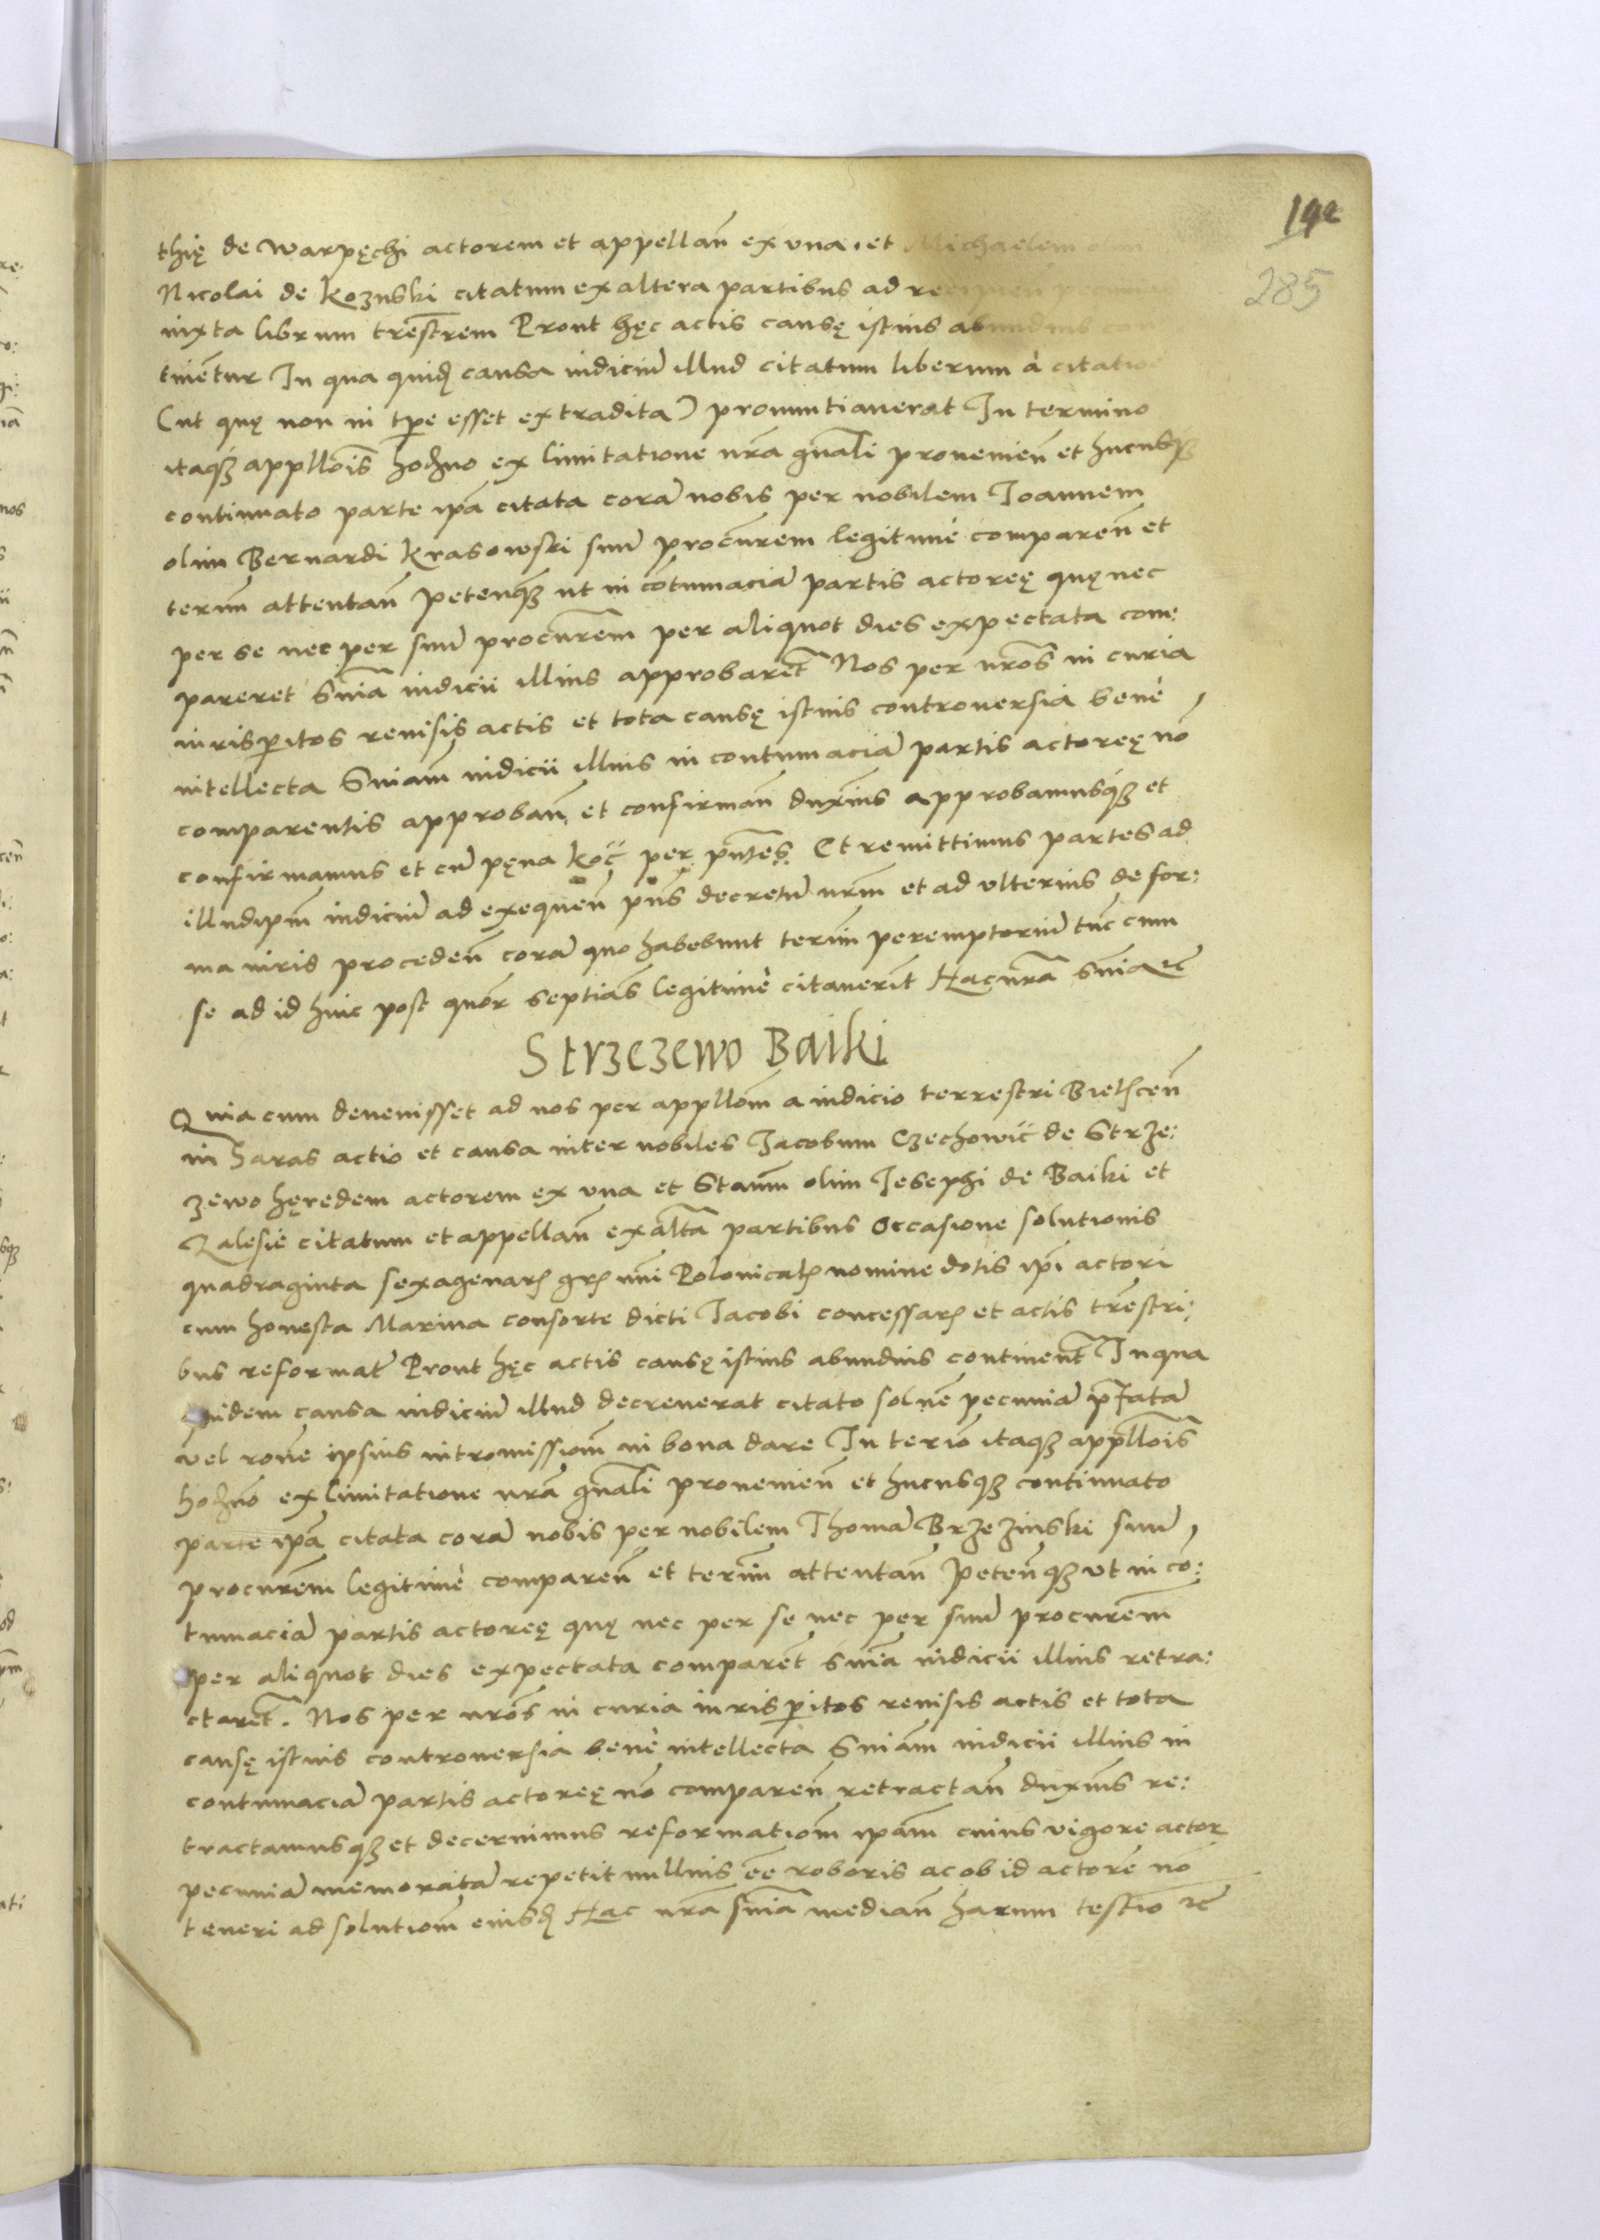 192
285
thię de Warpęchi actorem et appellan̄ ex vna, et Michaelem
Nicolai de Kozuski citatum ex altera partibus ad
iuxta librum trēstrem Prout hęc actis causę istius abundius
tinētur In qua quidē causa iudiciū illud citatum liberum à citatio
(ut quę non in tp̄re esset extradita) pronuntiauerat In termino
itaq3 appllōis hodierno ex limitatione nrā gn̄ali prouenien̄ et hucusq3
continuato parte ip̄a citata corā nobis per nobilem Joannem
olim Bernardi Krasowski suū procūrem legitimè comparen̄ et
termī attentan̄ petenq3 ut in cōtumaciā partis actoreę quę nec
per se nec per suū procūrem per aliquot dies expectata com:
pareret Sn̄ia iudicii illius approbaret̄ Nos per nrōs in curia
iurisperitos reuisis actis et tota causę istius controuersia benè
intellecta Sniam̄ iudicii illius in contumaciā partis actoreę nō
comparentis approban̄ et confirman̄ duxim̄us approbamusq3 et
confirmamus et cū pęna koc̄ per pn̄tes. Et remittimus partes ad
illudip̄m iudiciū ad exequen̄ pn̄s decretū nrm̄ et ad vlterius de for:
ma iuris proceden̄ corā quo habebunt termī peremptoriū tūc cum
se ad id huic post quōr septiān̄s legitimè citauerīt Hac nrā Sn̄ia &c
Strzezewo Baiki
Quia cum deuenisset ad nos per appllōm a iudicio terrestri Bielscen̄
in haras actio et causa inter nobiles Jacobum Czechowic̄ de Strze:
zewo hęredem actorem ex vna et Stanm̄ olim Iesephi de Baiki et
Zalesie citatum et appellan̄ ex altā partibus Occasione solutionis
quadraginta sexagenar̄ gr̄ nn̄i Polonical̄ nomine dotis ip̄i actori
cum honesta Marina consorte dicti Jacobi concessar̄ et actis trēstri:
bus reformat̄ Prout hęc actis causę istius abundius continent̄ In qua
quidem causa iudiciū illud decreuerat citato soluēre pecuniā prēfatā
vel rōne ipsius intromissiom̄ in bona dare In termīo itaq3 appllōis
hodiernō ex limitatione nrā gn̄ali prouenien̄ et hucusq3 continuato
parte ip̄a citata corā nobis per nobilem Thomā Brzezinski suū
procūrem legitimè comparen̄ et termī attentan̄ Petenq3 vt in cō:
tumaciā partis actoreę quę nec per se nec per suū procūrem
per aliquot dies expectata comparet̄ Sn̄ia iudicii illius retra:
ctaret̄. Nos per nrōs in curia iurisperitos reuisis actis et tota
causę istius controuersia benè intellecta Sniam̄ iudicii illius in
contumaciā partis actoreę nō comparen̄ retractan̄ duxim̄us re:
tractamusq3 et decernimus reformatiom̄ ipam̄ cuius vigore actor
pecuniā memoratā repetit nullius ēe roboris ac ob id actorē nō
teneri ad solutiom̄ eiusd̄ Hac nrā sn̄ia median̄ harum testīo &c